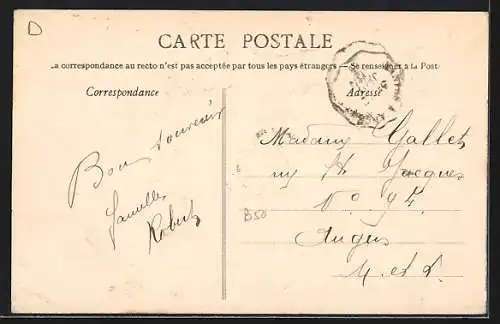 D
CARTE POSTALE
La correspondance au recto n'est pas acceptée par tous les pays étrangers — Se renseigner à la Post
Correspondance
Adresse
Bon souvenir
famille
Robert
Madame Gallet
rue St Jacques
No 94
Angers
M. et L.
B50